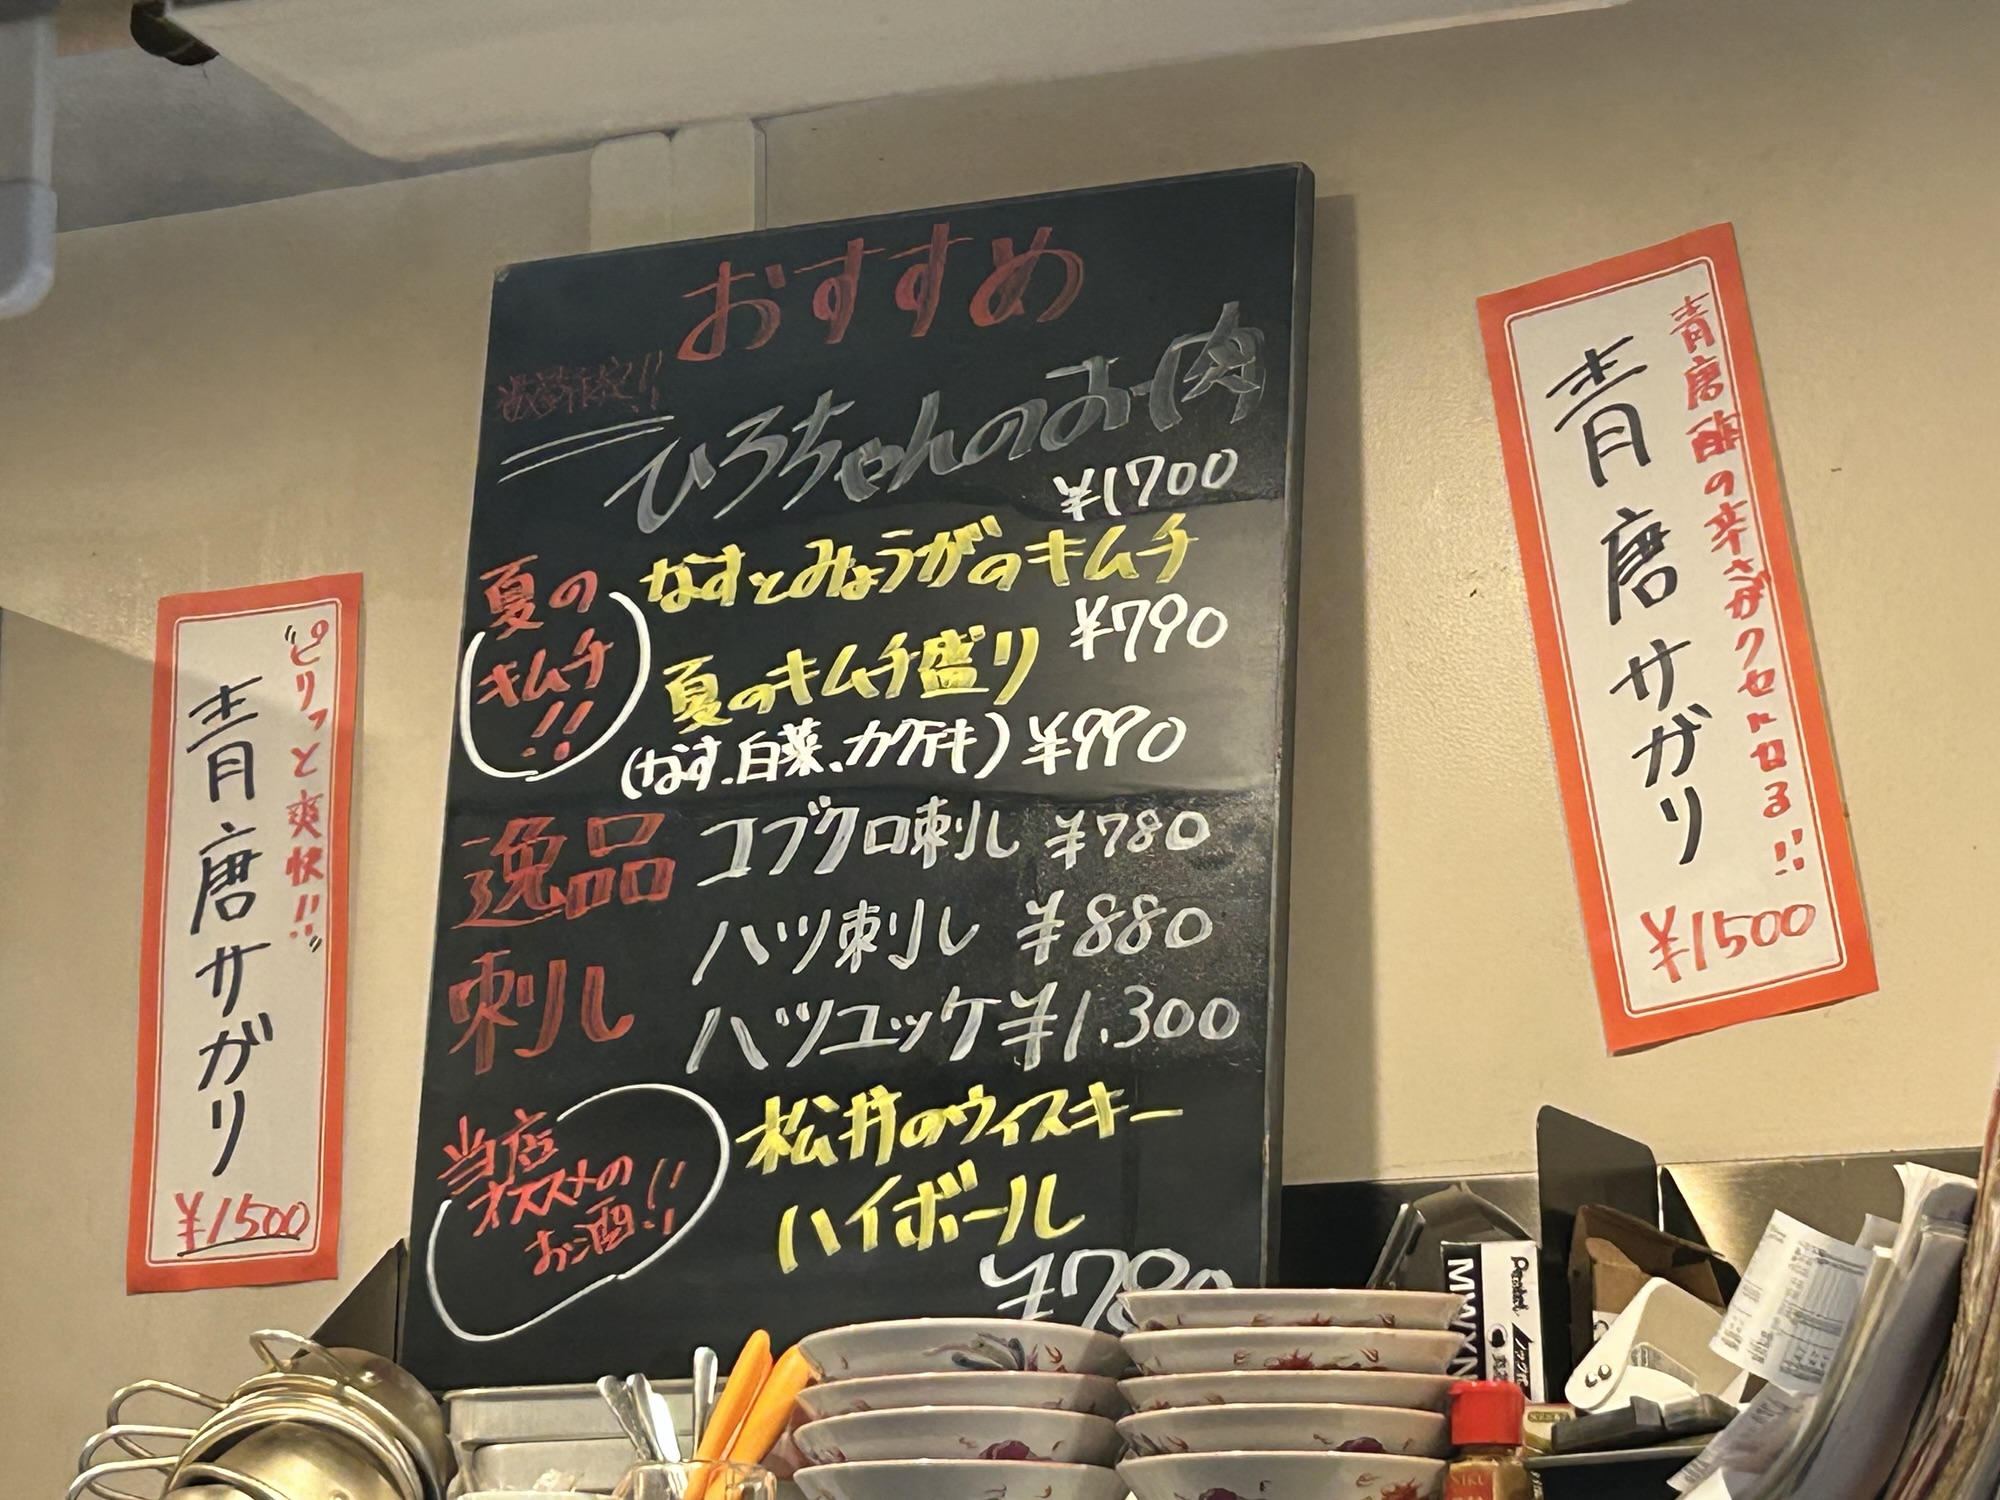 おすすめ
ひろちゃんのお肉
¥1700
夏の
キムチ
!!
なすとみょうがのキムチ
¥790
夏のキムチ盛り
(なす、白菜、カクテキ) ¥990
逸品
刺し
コブクロ刺し ¥780
ハツ刺し ¥880
ハツユッケ ¥1.300
当店
オススメの
お酒!!
松井のウィスキー
ハイボール
¥790
"ピリっと爽快!!"
青唐サガリ
¥1500
青唐酢の辛さがクセになる!!
青唐サガリ
¥1500
Pentel